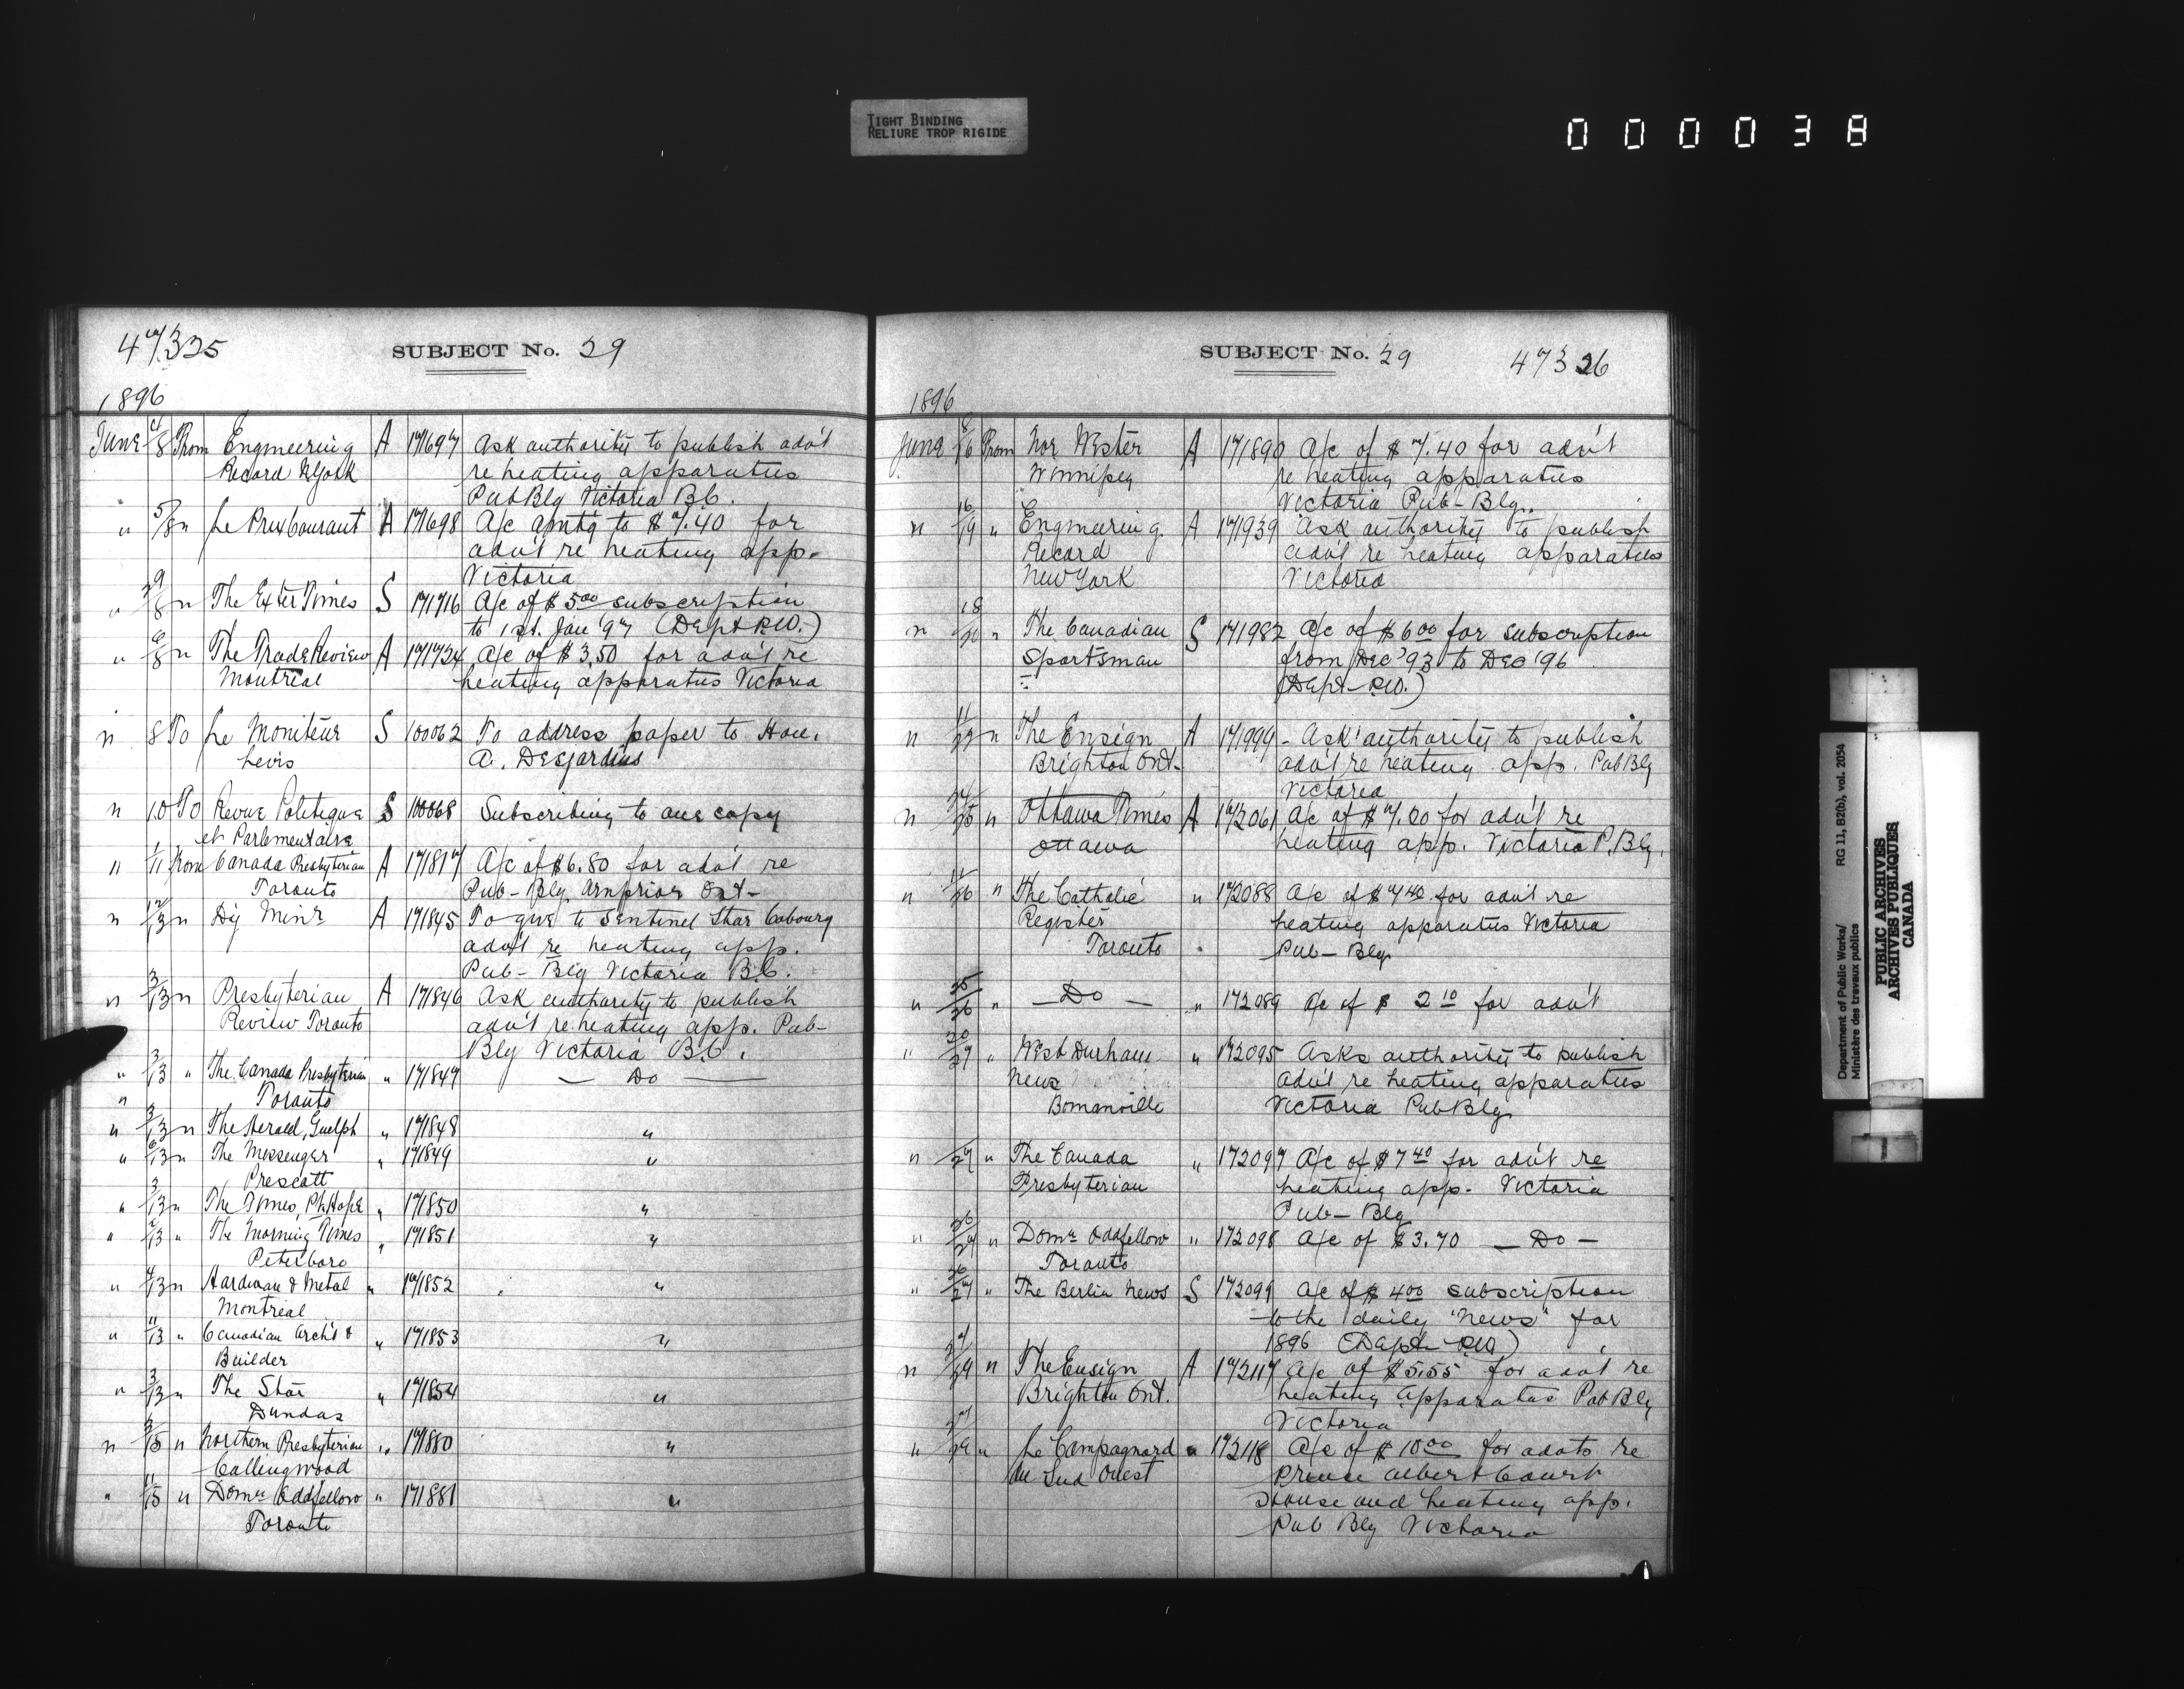 TIGHT BINDING
RELIURE TROP RIGIDE
000038
47325
SUBJECT No. 29
1896
June 4/8 From Engineering A 171697 Ask authority to publish adv't
Record N York re heating apparatus
Pub Blg Victoria B.C.
" 5/8 " Le Prix Courant A 171698 A/c amtg to $7.40 for
adv't re heating app.
Victoria
" " The Exeter Times S 171716 A/c of $5.00 subscription
to 1st. Jan '97 (Dept P.W.)
" 6/8 " The Trade Review A 171724 A/c of $3.50 for adv't re
Montreal heating apparatus Victoria
" 8 To Le Moniteur S 100062 To address paper to Hon.
Levis A. Desjardins
" 10 To Revue Politique S 100068 Subscribing to one copy
et Parlementaire
" 1/11 From Canada Presbyterian A 171817 A/c of $6.80 for adv't re
Toronto Pub-Blg Arnprior Ont-
" 12/13 " Dy Minr A 171845 To give to Sentinel Star Cobourg
adv't re heating app.
Pub-Blg Victoria B.C.
" 3/13 " Presbyterian A 171846 Ask authority to publish
Review Toronto adv't re heating app. Pub-
Blg Victoria B.C.
" 3/13 " The Canada Presbyterian " 171847 — Do —
" Toronto
" 3/13 " The Herald, Guelph " 171848 "
" 6/13 " The Messenger " 171849 "
Prescott
" 3/13 " The Times, Pt. Hope " 171850 "
" 2/13 " The Morning Times " 171851 "
Peterboro
" 4/13 " Hardware & Metal " 171852 "
Montreal
" 11/13 " Canadian Arch't & " 171853 "
Builder
" 3/13 " The Star " 171854 "
Dundas
" 3/15 " Northern Presbyterian " 171880 "
Collingwood
" 11/15 " Domn Oddfellow " 171881 "
Toronto
SUBJECT No. 29
47326
1896
June 8/16 From Nor Wester A 171890 A/c of $7.40 for adv't
Winnipeg re heating apparatus
Victoria Pub-Blg.
" 16/19 " Engineering A 171939 Ask authority to publish
Record adv't re heating apparatus
New York Victoria
" 18/20 " The Canadian S 171982 A/c of $6.00 for subscription
Sportsman from Dec '93 to Dec '96
(Dept-P.W.)
" 11/22 " The Ensign A 171999 - Ask authority to publish
Brighton Ont. adv't re heating app. Pub Blg
Victoria
" 24/25 " Ottawa Times A 172061 A/c of $7.00 for adv't re
Ottawa heating app. Victoria P. Blg.
" 11/26 " The Catholic " 172088 A/c of $7.40 for adv't re
Register heating apparatus Victoria
Toronto Pub-Blg
" 25/26 " — Do — " 172089 A/c of $2.10 for adv't
" 20/27 " West Durham " 172095 Asks authority to publish
News adv't re heating apparatus
Bomanville Victoria Pub Blg
" /27 " The Canada " 172097 A/c of $7.40 for adv't re
Presbyterian heating app. Victoria
Pub-Blg
" 26/27 " Domn Oddfellow " 172098 A/c of $3.70 — Do —
Toronto
" 26/27 " The Berlin News S 172099 A/c of $4.00 subscription
to the daily "News" for
1896 (Dept-P.W.)
" 27/29 " The Ensign A 172117 A/c of $5.55 for advt re
Brighton Ont. heating apparatus Pub Blg
Victoria
" 27/29 " Le Campagnard " 172118 A/c of $10.00 for advts re
du Sud Ouest Prince Albert Court
House and heating app.
Pub Blg Victoria
Department of Public Works/ RG 11, B2(b), vol. 2054
Ministère des travaux publics
PUBLIC ARCHIVES
ARCHIVES PUBLIQUES
CANADA